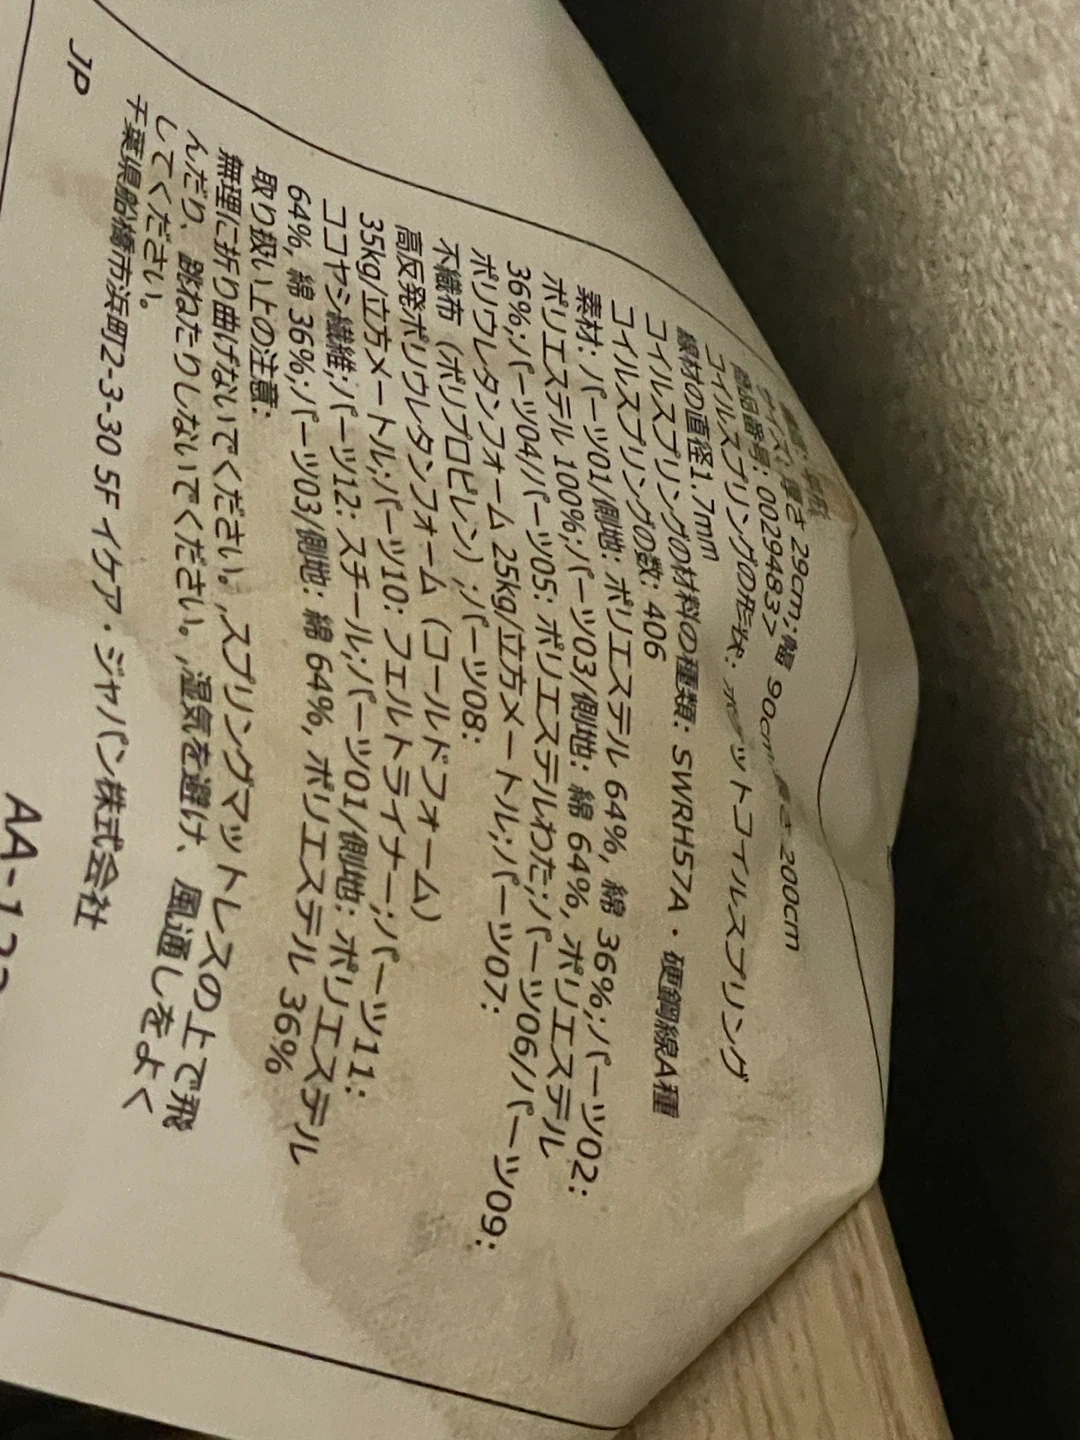 サイズ: 厚さ 29cm;幅 90cm;長さ 200cm
番号: 00294837
コイルスプリングの形状: ポケットコイルスプリング
線材の直径1.7mm
コイルスプリングの材料の種類: SWRH57A・硬鋼線A種
コイルスプリングの数: 406
素材: パーツ01/側地: ポリエステル 64%, 綿 36%;パーツ02:
ポリエステル 100%;パーツ03/側地: 綿 64%, ポリエステル
36%;パーツ04/パーツ05: ポリエステルわた;パーツ06/パーツ09:
ポリウレタンフォーム 25kg/立方メートル;パーツ07:
不織布（ポリプロピレン）;パーツ08:
高反発ポリウレタンフォーム（コールドフォーム）
35kg/立方メートル;パーツ10: フェルトライナー;パーツ11:
ココヤシ繊維;パーツ12: スチール;パーツ01/側地: ポリエステル
64%, 綿 36%;パーツ03/側地: 綿 64%, ポリエステル 36%
取り扱い上の注意:
無理に折り曲げないでください。,スプリングマットレスの上で飛
んだり、跳ねたりしないでください。,湿気を避け、風通しをよく
してください。
千葉県船橋市浜町2-3-30 5F イケア・ジャパン株式会社
JP